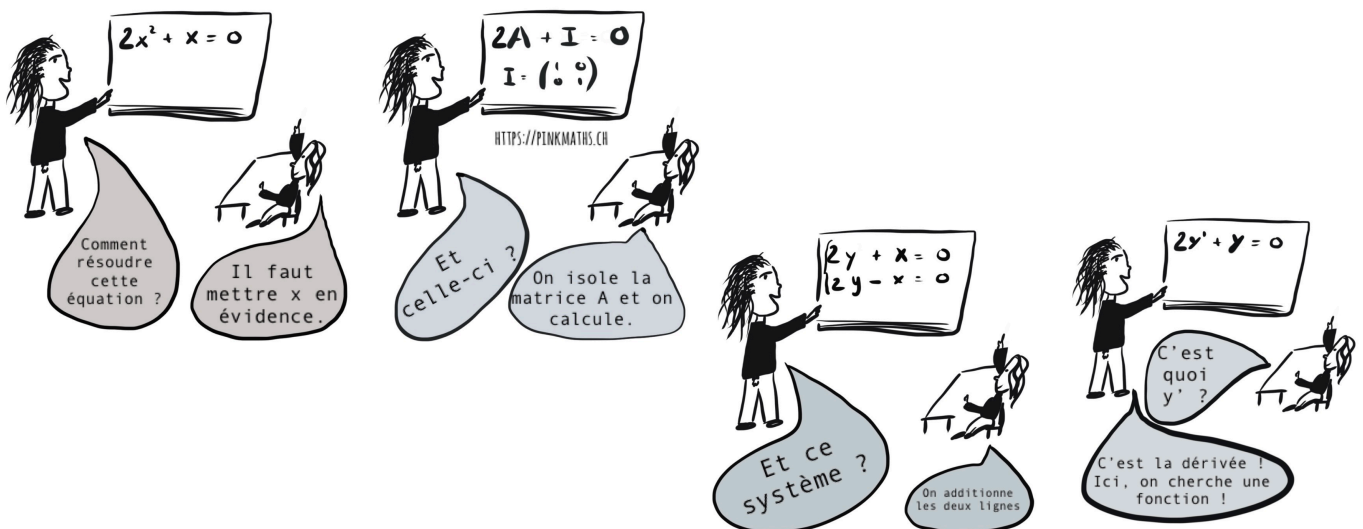 2x² + x = 0
Comment
résoudre
cette
équation ?
Il faut
mettre x en
évidence.
2A + I = 0
I = (1 0
0 1)
HTTPS://PINKMATHS.CH
Et
celle-ci ?
On isole la
matrice A et on
calcule.
2y + x = 0
2y - x = 0
Et ce
système ?
On additionne
les deux lignes
2y' + y = 0
C'est
quoi
y' ?
C'est la dérivée !
Ici, on cherche une
fonction !